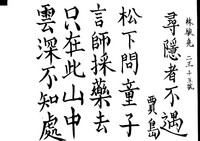 林毓堯 二三十五號
尋隱者不遇
賈島
松下問童子
言師採藥去
只在此山中
雲深不知處